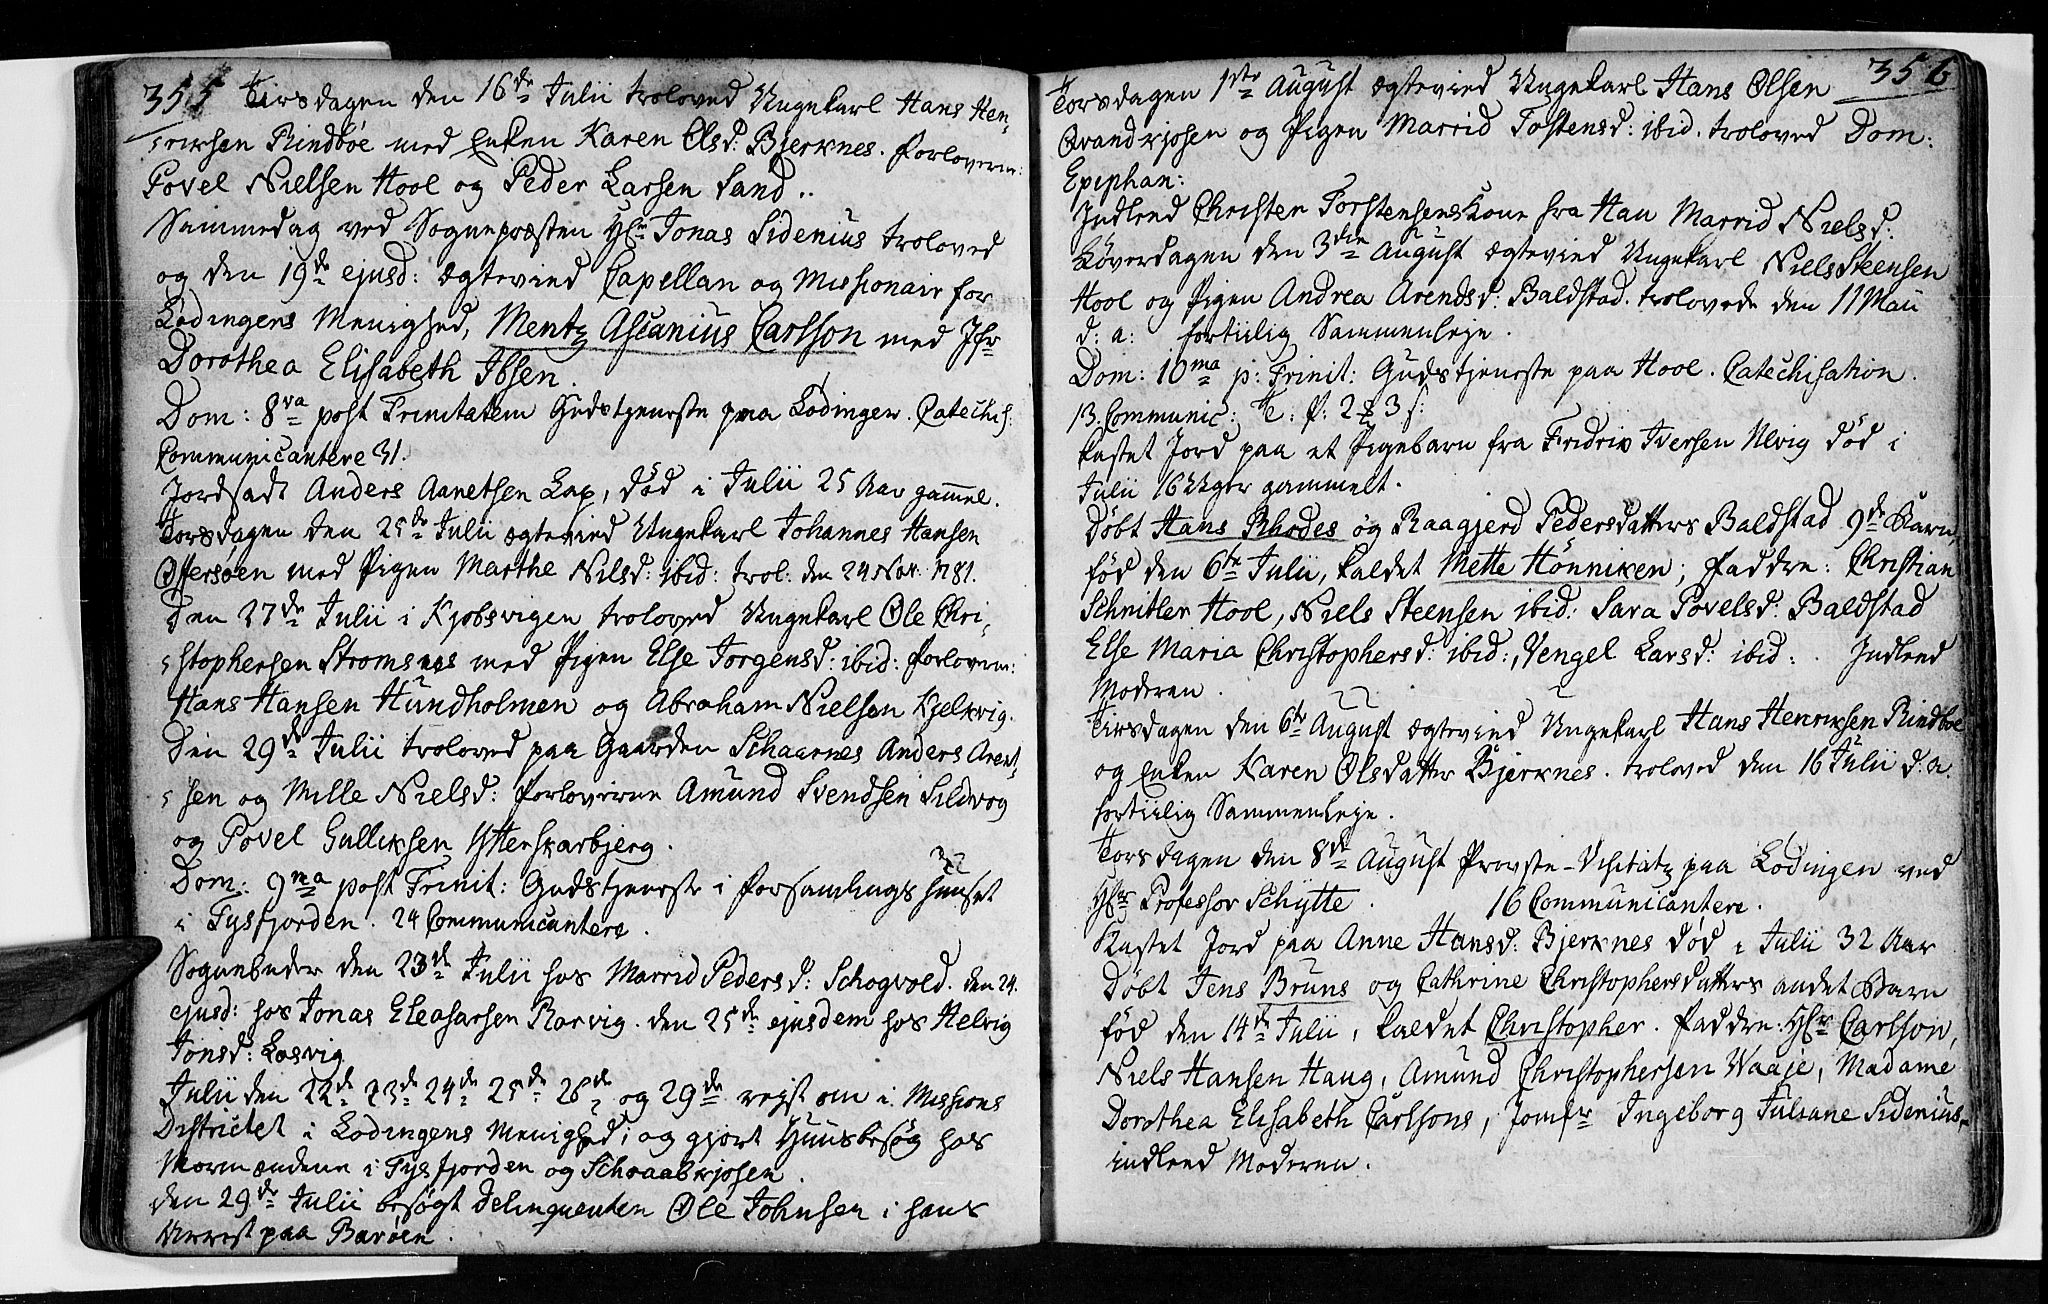 355 Tirsdagen den 16de Julii troloved Ungekarl Hans Hen-
-riksen Rindbøe med Enken Karen Olsd: Bjerknes. Forlovern:
Povel Nielsen Hool og Peder Larsen Sand..
Sammedag ved Sognepræsten Hr Jonas Sidenius troloved
og den 19de ejusd: ægtevied Capellan og Missionair for
Lodingens Menighed, Mentz Ascanius Carlson med Jfr
Dorothea Elisabeth Ibsen.
Dom: 8va post Trinitatem Gudstjeneste paa Lodingen. Catechis:
Communicantere 31.
Jordsadt Anders Aanetsen Lap, død i Julii 25 Aar gammel.
Torsdagen den 25de Julii ægtevied Ungekarl Johannes Hansen
Offersøen med Pigen Marthe Nilsd: ibid: trol: den 24 Nov: 1781.
Den 27de Julii i Kjobsvigen troloved Ungekarl Ole Chri-
-stophersen Stromsnes med Pigen Else Jorgensd: ibid: Forlovern:
Hans Hansen Hundholmen og Abraham Nielsen Kjelkvig.
Den 29de Julii troloved paa Gaarden Schaarnes Anders Arent-
-sen og Mille Nielsd: Forloverne Amund Svendsen Sildvog
og Povel Gulliksen Ytterskarbjerg.
Dom: 9na post Trinit: Gudstjeneste i Forsamlings huuset
i Tysfjorden. 24 Communicantere.
Sognebuder den 23de Julii hos Marrid Pedersd: Schogvold. den 24.
ejusd: hos Jonas Eleasarsen Rorvig. den 25de ejusdem hos Helvig
Jonsd: Losvig
Julii den 22de 23de 24de 25de 26de og 29de rejst om i Missions
Districtet i Lodingens Menighed, og gjort Huusbesøg hos
Normændene i Tysfjorden og Schraabkjosen.
den 29de Julii besøgt Delinquenten Ole Johnsen i hans
Arrest paa Barøen.
356
Torsdagen 1ste August ægtevied Ungekarl Hans Olsen
Qvandkjosen og Pigen Marrid Tostensd: ibid. troloved Dom:
Epiphan:
Indleed Christen Torstensens Kone fra Hau Marrid Nielsd:
Løverdagen den 3die August ægtevied Ungekarl Niels Steensen
Hool og Pigen Andrea Arendsd: Baldstad. trolovede den 11 Maii
d: a: fortiilig Sammenleje.
Dom: 10ma p: Trinit: Gudstjeneste paa Hool. Catechisation.
13. Communic:
kastet Jord paa et Pigebarn fra Fridrik Iversen Ulvig død i
Julii 16 Uger gammelt.
Døbt Hans Rhodes og Raagjerd Pedersdatters Baldstad 9de Barn,
fød den 6te Julii, kaldet Mette Hønniken; Faddre: Christian
Schnitler Hool, Niels Steensen ibid: Sara Povelsd: Baldstad
Else Maria Christophersd: ibid:, Vengel Larsd: ibid: . Indleed
Moderen.
Tirsdagen den 6te August ægtevied Ungekarl Hans Henriksen Rindbøe
og Enken Karen Olsdatter Bjerknes. troloved den 16 Julii d. a.
fortiilig Sammenleje.
Torsdagen den 8de August Provste-Visitatz paa Lodingen ved
Hr Professor Schytte. 16 Communicantere.
Kastet Jord paa Anne Hansd: Bjerknes død i Julii 32 Aar
Døbt Jens Bruns og Cathrine Christophersdatters andet Barn
fød den 14de Julii, kaldet Christopher. Faddre: Hr Carlson,
Niels Hansen Haug, Amund Christophersen Waaje, Madame
Dorothea Elisabeth Carlsons, Jomfr Ingeborg Juliane Sidenius.
indleed Moderen.